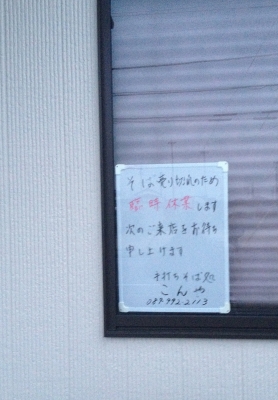 そば売り切れのため
臨時休業します
次のご来店をお待ち
申し上げます
手打ちそば処
こんや